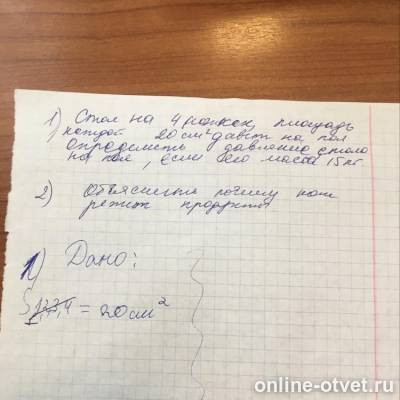 1) Стол на 4 ножках, площадь
каждой 20 см² давит на пол
определить давление стола
на пол, если его масса 15 кг.
2) Объяснить почему нож
режит продукты
1) Дано:
S1,2,3,4 = 20 см²
online-otvet.ru